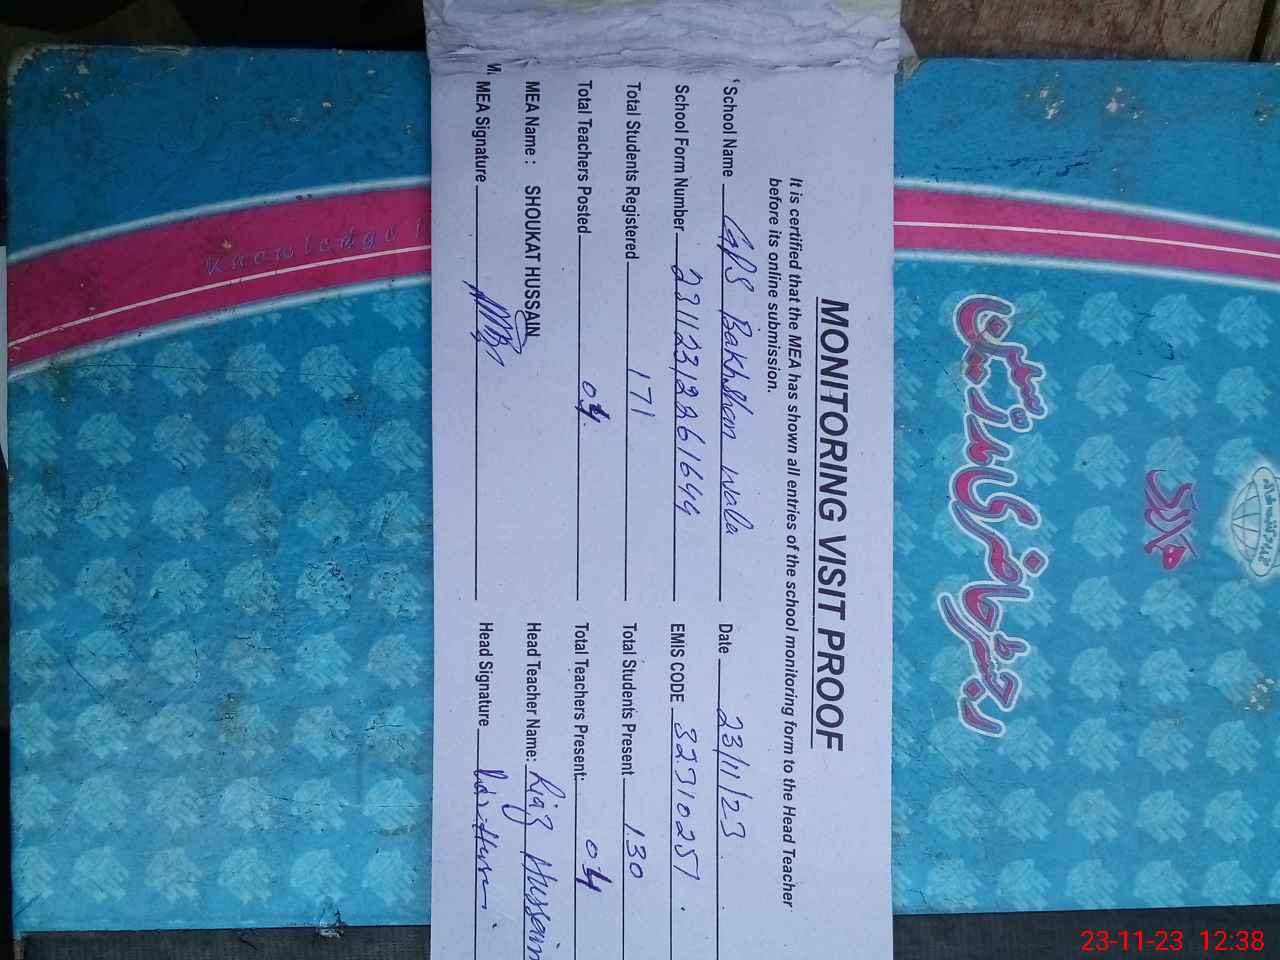 MONITORING VISIT PROOF
It is certified that the MEA has shown all entries of the school monitoring form to the Head Teacher
before its online submission.
School Name GPS Bakhshan wala Date 23/11/23
School Form Number 23112312261644 EMIS CODE 32310251
Total Students Registered 171 Total Students Present 130
Total Teachers Posted 04 Total Teachers Present: 04
MEA Name : SHOUKAT HUSSAIN Head Teacher Name: Riaz Hussain
MEA Signature Head Signature
Knowledge
ہمدرد
رجسٹر حاضری مدرسین
23-11-23 12:38